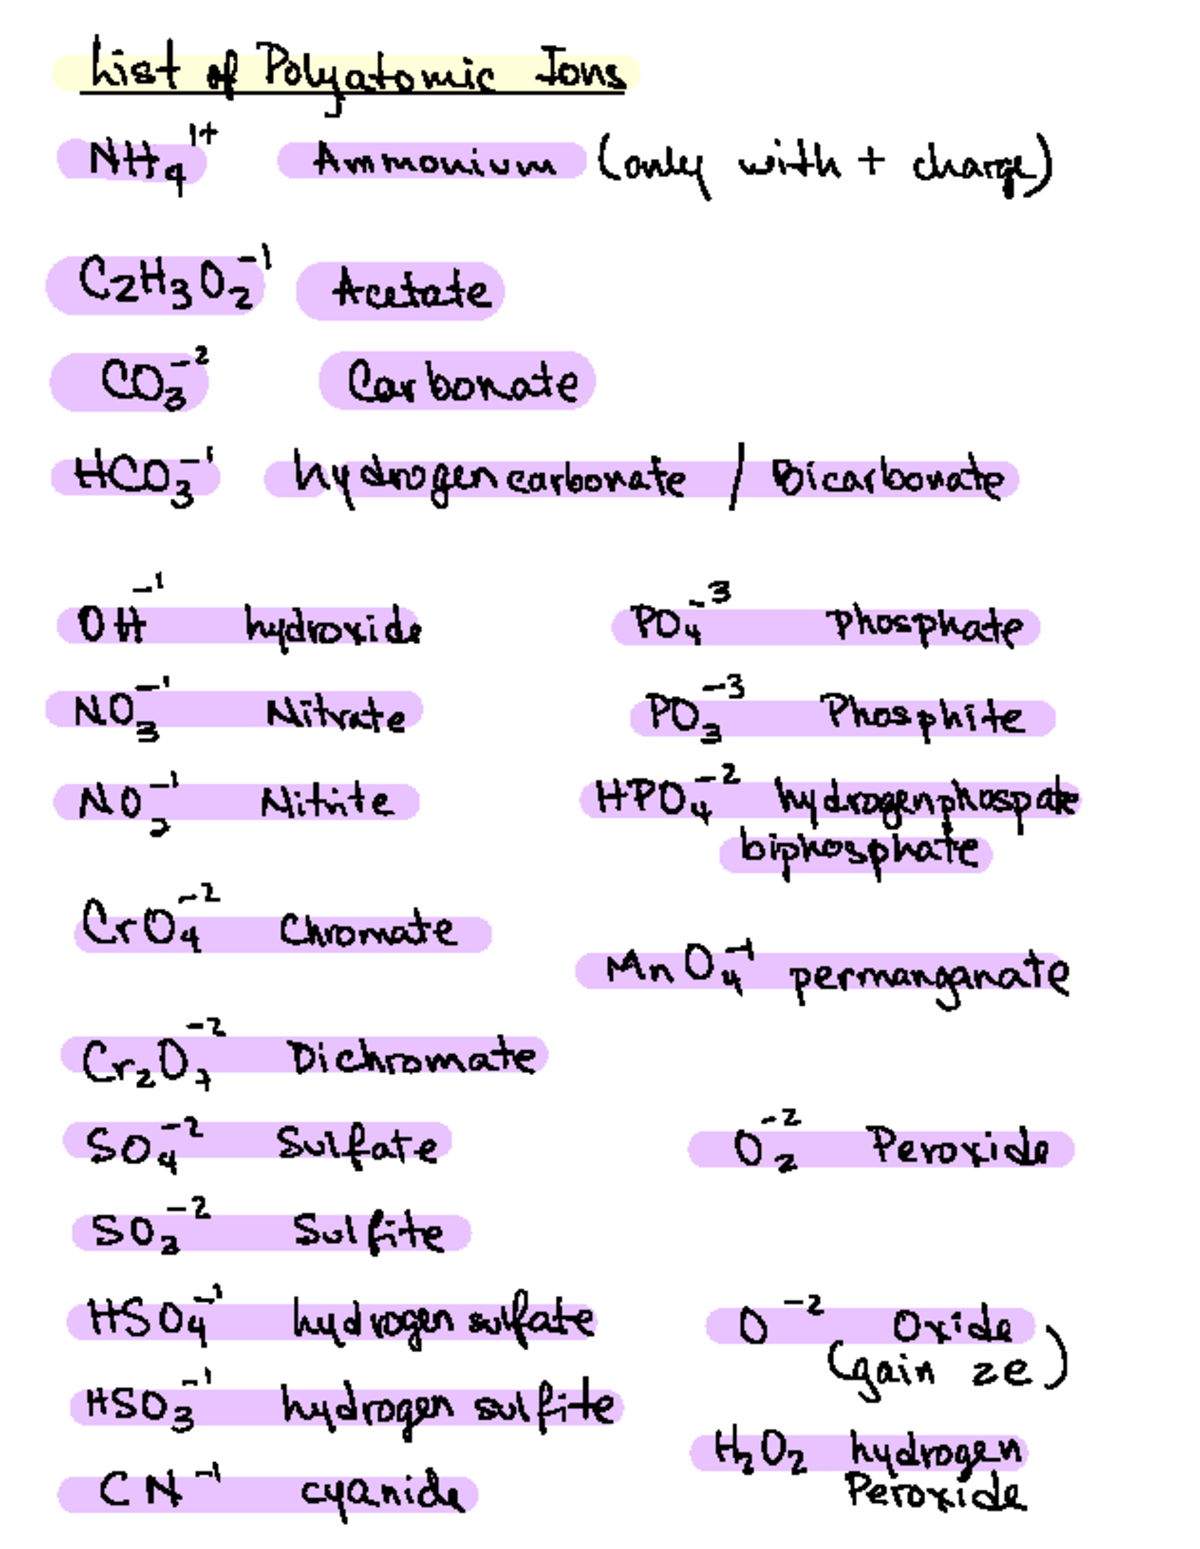 List of Polyatomic Ions
NH₄¹⁺ Ammonium (only with + charge)
C₂H₃O₂⁻¹ Acetate
CO₃⁻² Carbonate
HCO₃⁻¹ hydrogencarbonate / Bicarbonate
OH⁻¹ hydroxide
NO₃⁻¹ Nitrate
NO₂⁻¹ Nitrite
CrO₄⁻² Chromate
Cr₂O₇⁻² Dichromate
SO₄⁻² Sulfate
SO₃⁻² Sulfite
HSO₄⁻¹ hydrogen sulfate
HSO₃⁻¹ hydrogen sulfite
CN⁻¹ cyanide
PO₄⁻³ phosphate
PO₃⁻³ Phosphite
HPO₄⁻² hydrogenphospate
biphosphate
MnO₄⁻¹ permanganate
O₂⁻² Peroxide
O⁻² Oxide
(gain 2e)
H₂O₂ hydrogen
Peroxide